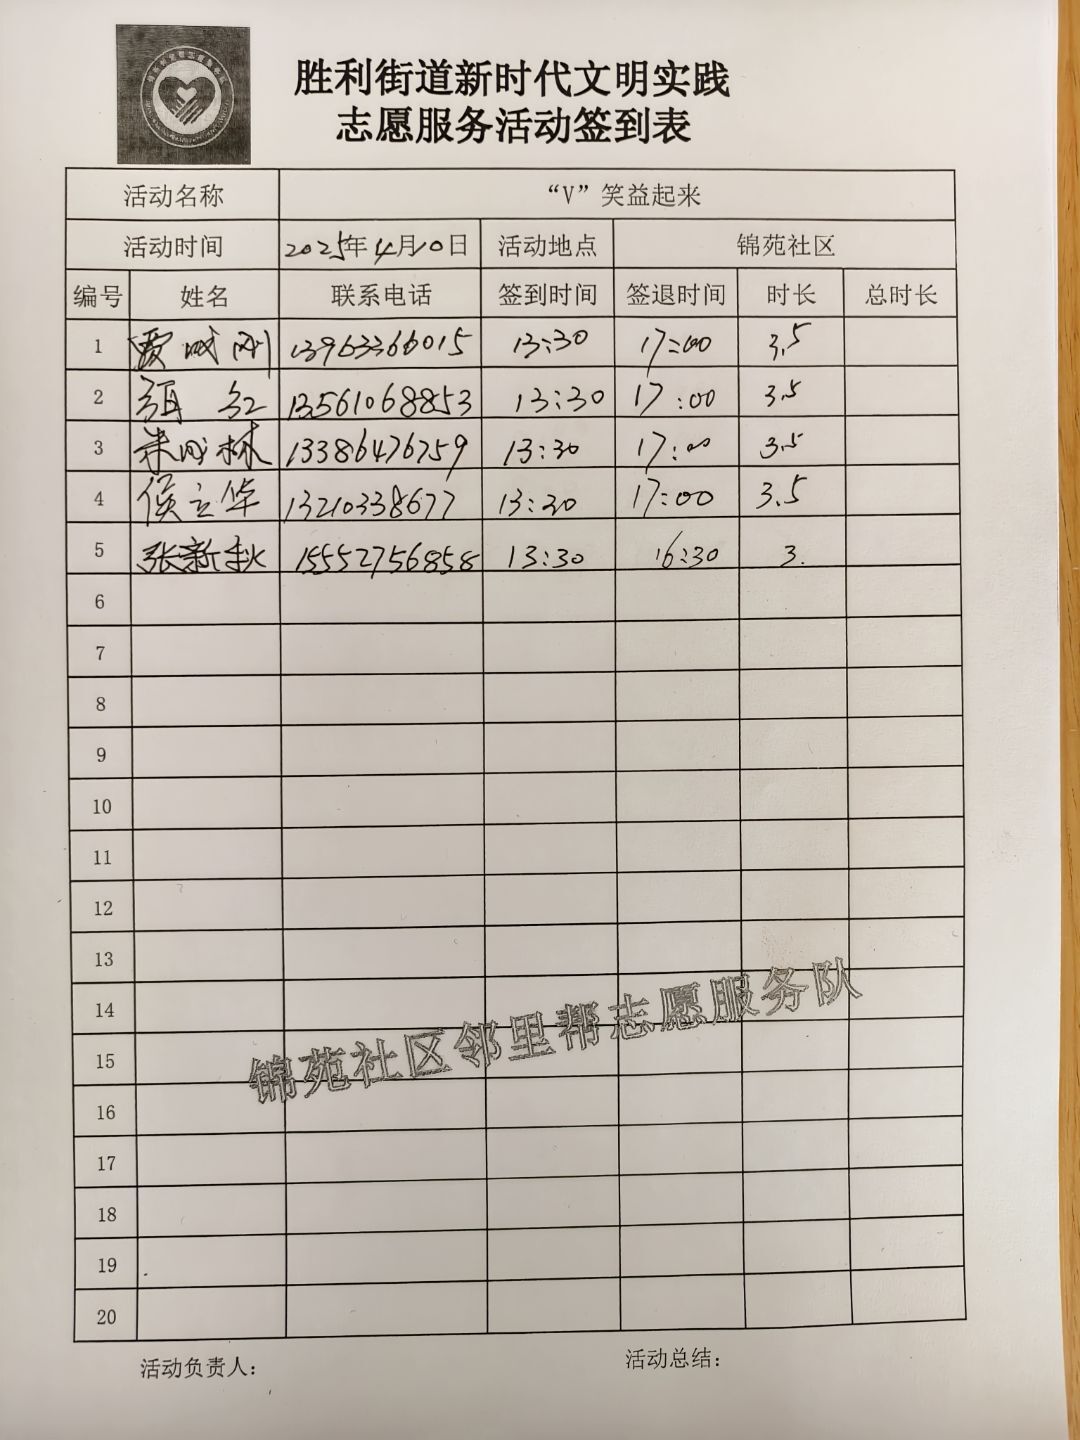 胜利街道新时代文明实践
志愿服务活动签到表
活动名称 “V”笑益起来
活动时间 2025年4月10日 活动地点 锦苑社区
编号 姓名 联系电话 签到时间 签退时间 时长 总时长
1 贾城刚 13963366015 13:30 17:00 3.5
2 红 13561068853 13:30 17:00 3.5
3 朱成林 13386476759 13:30 17:00 3.5
4 侯立华 13210338677 13:30 17:00 3.5
5 张新秋 15552756858 13:30 16:30 3.
6
7
8
9
10
11
12
13
14
15
16
17
18
19
20
锦苑社区邻里帮志愿服务队
活动负责人： 活动总结：